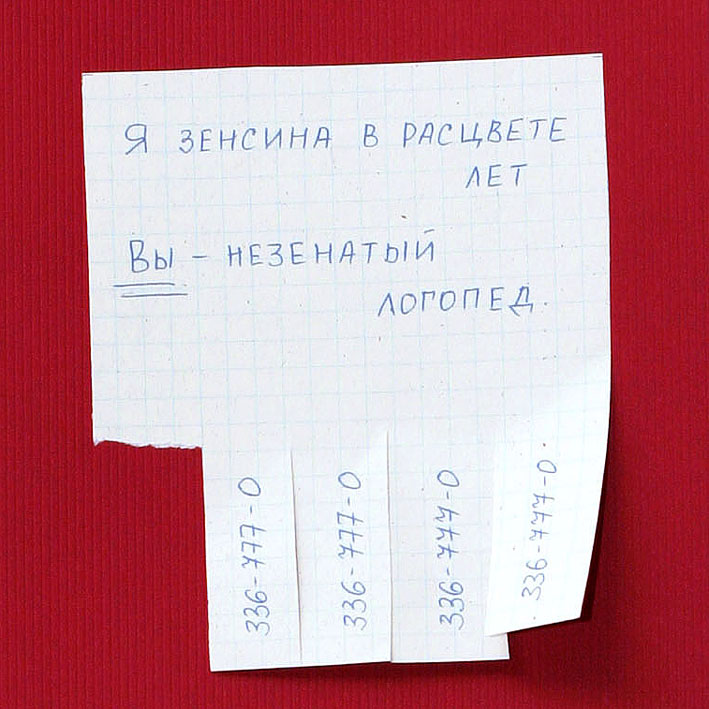 Я ЗЕНСИНА В РАСЦВЕТЕ
ЛЕТ
Вы - НЕЗЕНАТЫЙ
ЛОГОПЕД.
336-777-0
336-777-0
336-777-0
336-777-0